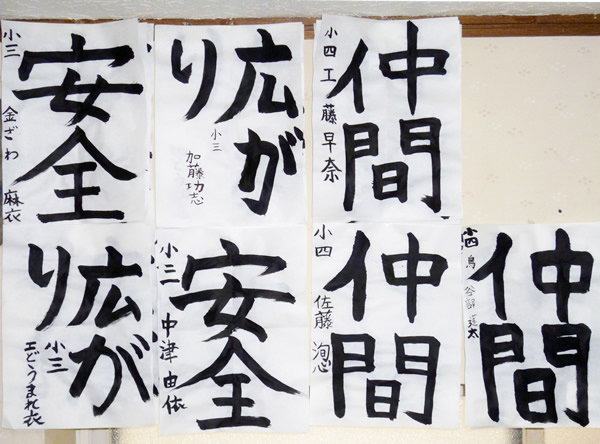 安全
小三 金ざわ 麻衣
広が
り
小三
加藤功志
仲間
小四 工藤早奈
広が
り
小三
工どうまれ衣
安全
小三 中津由依
仲間
小四 佐藤
仲間
小四